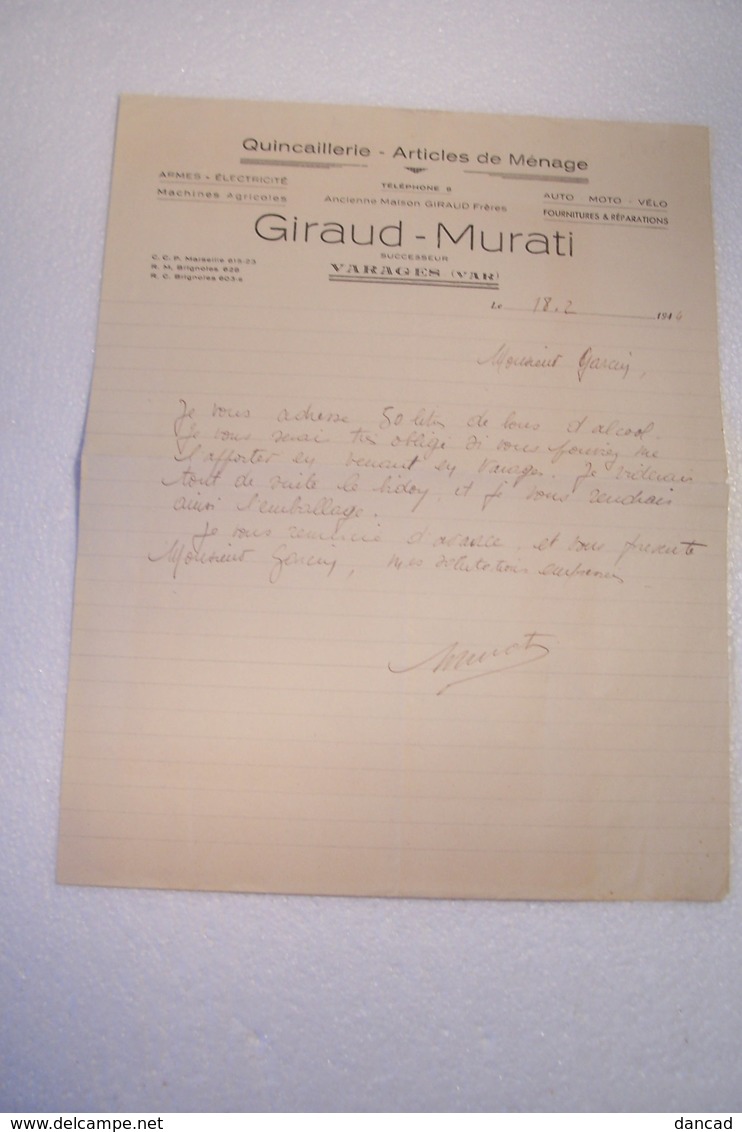 Quincaillerie - Articles de Ménage
ARMES - ÉLECTRICITÉ
Machines Agricoles
TÉLÉPHONE 8
Ancienne Maison GIRAUD Frères
AUTO - MOTO - VÉLO
FOURNITURES & RÉPARATIONS
Giraud - Murati
SUCCESSEUR
VARAGES (VAR)
C. C. P. Marseille 615-23
R. M. Brignoles 628
R. C. Brignoles 603-s
Le 18.2 1944
Monsieur Garcin,
Je vous adresse 50 litres de bons d'alcool.
Je vous serai très obligé si vous pouviez me
l'apporter en venant en Varages. Je viderais
tout de suite le bidon, et je vous rendrais
ainsi l'emballage.
Je vous remercie d'avance, et vous présente
Monsieur Garcin, mes salutations empressées
Murati
delcampe.net
dancad